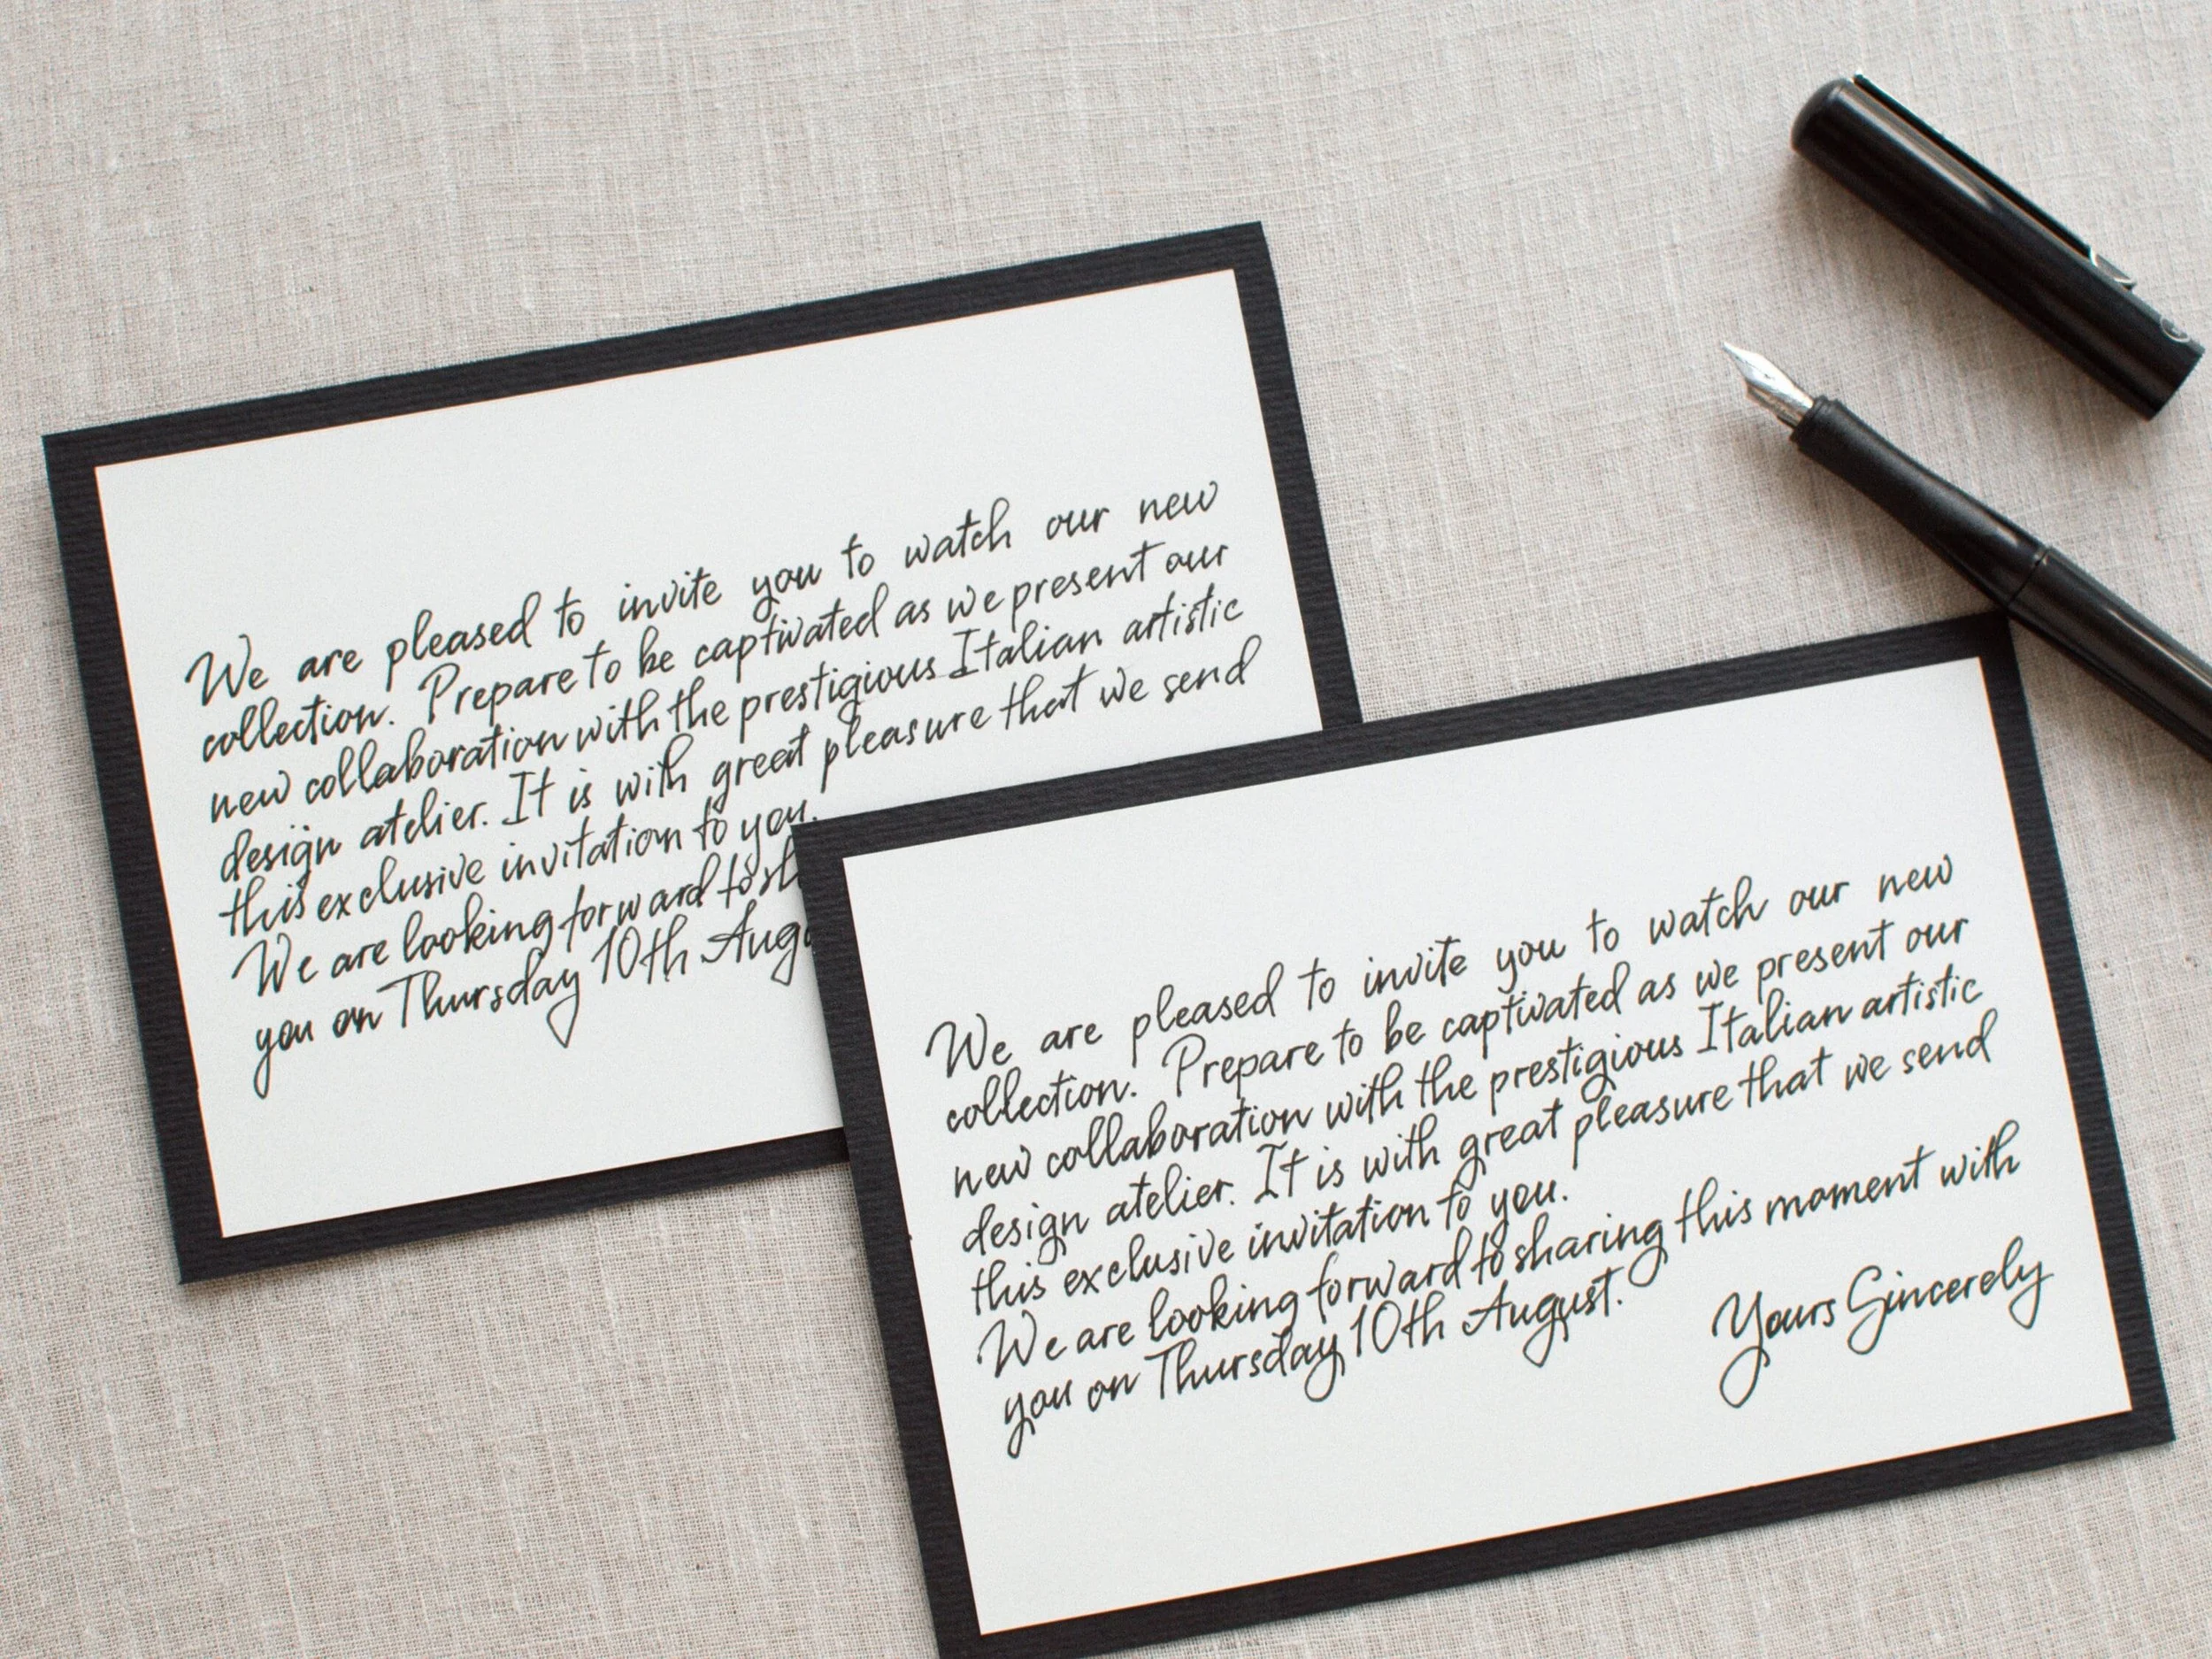 We are pleased to invite you to watch our new
collection. Prepare to be captivated as we present our
new collaboration with the prestigious Italian artistic
design atelier. It is with great pleasure that we send
this exclusive invitation to you.
We are looking forward to sh
you on Thursday 10th Aug
We are pleased to invite you to watch our new
collection. Prepare to be captivated as we present our
new collaboration with the prestigious Italian artistic
design atelier. It is with great pleasure that we send
this exclusive invitation to you.
We are looking forward to sharing this moment with
you on Thursday 10th August.
Yours Sincerely